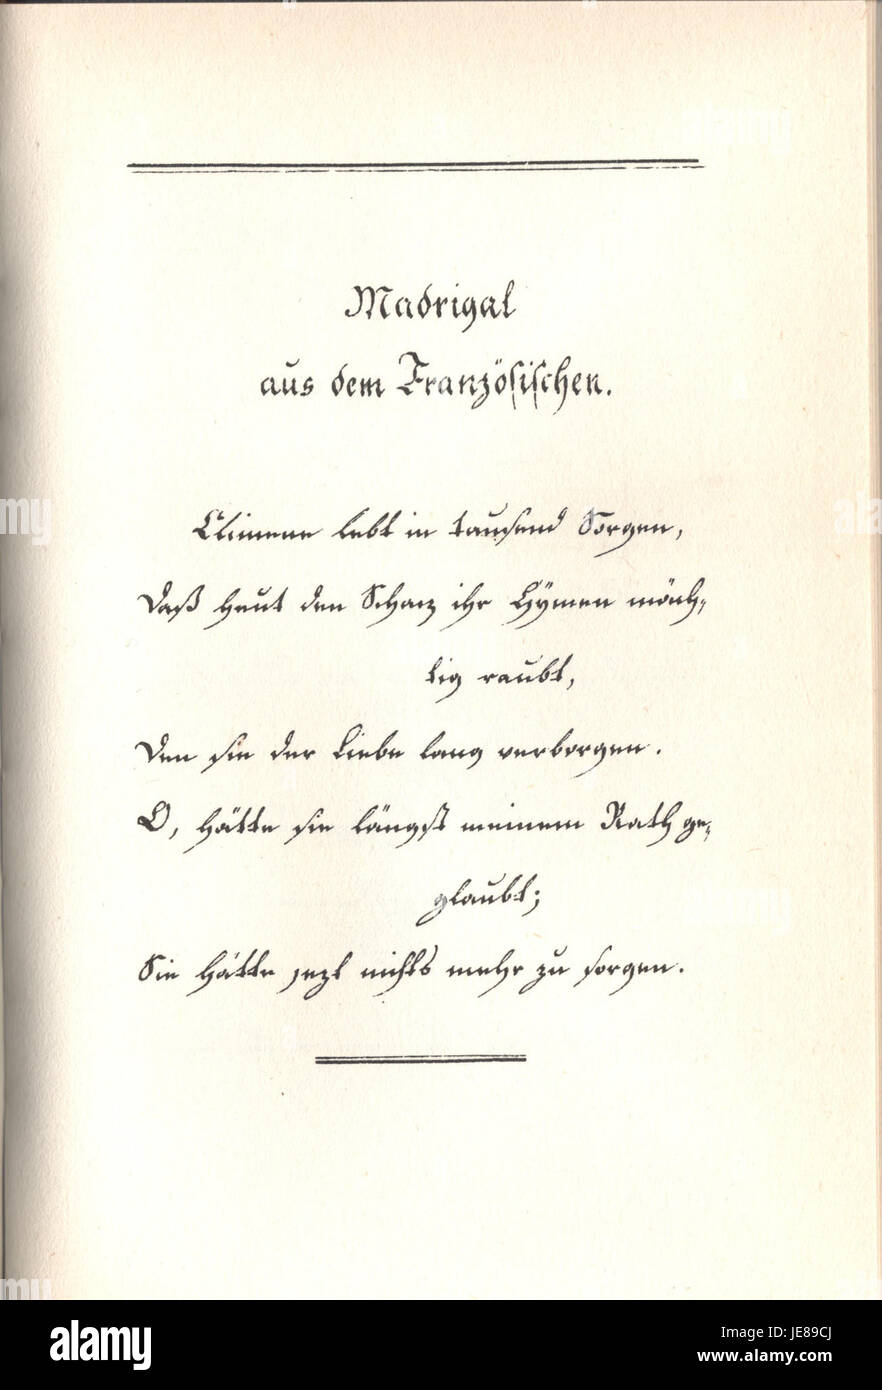 Madrigal
aus dem Französischen.
Climene lebt in tausend Sorgen,
Daß heut den Schaz ihr Hÿmen mäch-
tig raubt,
Den sie der Liebe lang verborgen.
O, hätte sie längst meinem Rath ge-
glaubt;
Sie hätte jezt nichts mehr zu sorgen.
alamy
Image ID: JE89CJ
www.alamy.com